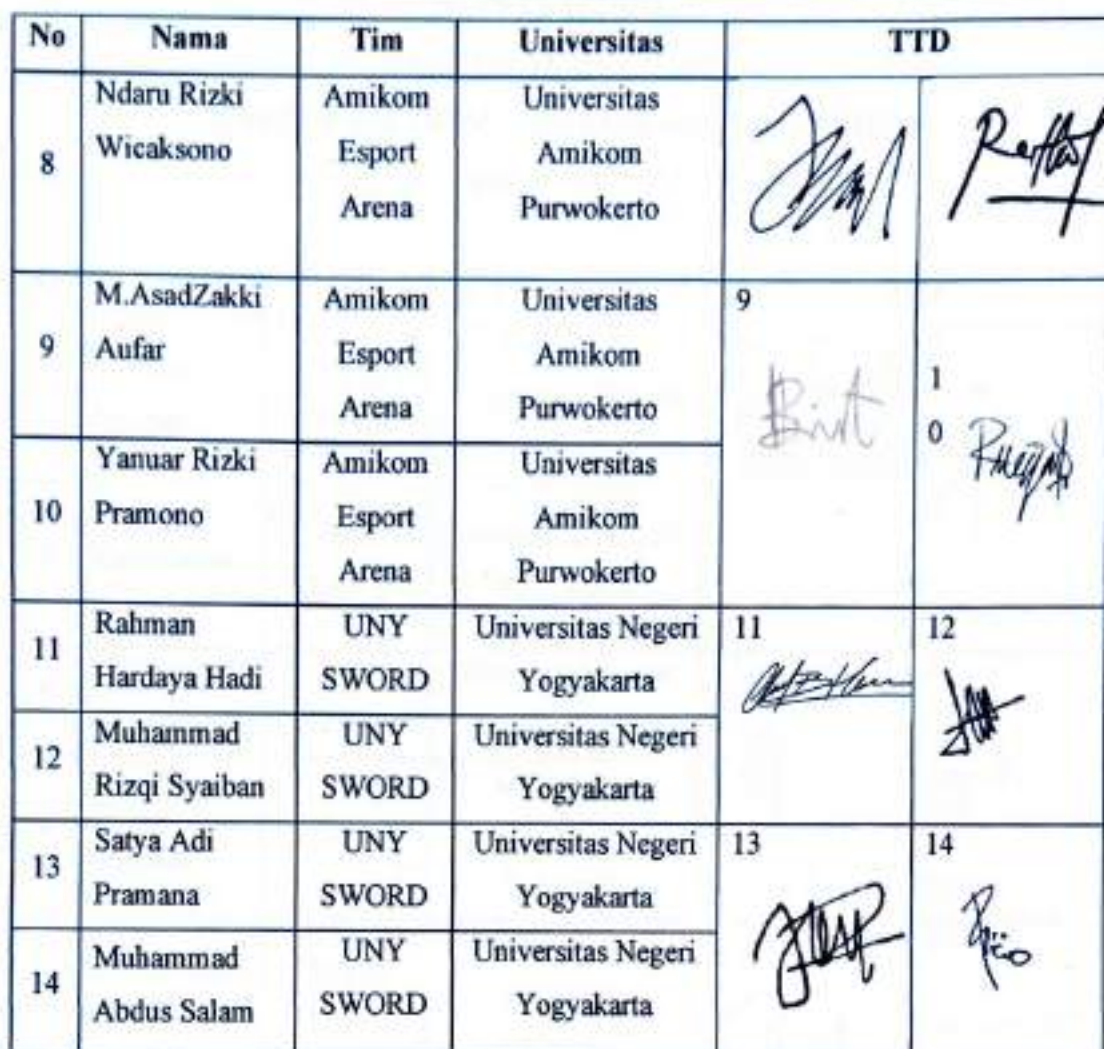 No Nama Tim Universitas TTD
8 Ndaru Rizki Wicaksono Amikom Esport Arena Universitas Amikom Purwokerto
9 M.AsadZakki Aufar Amikom Esport Arena Universitas Amikom Purwokerto 9
10 Yanuar Rizki Pramono Amikom Esport Arena Universitas Amikom Purwokerto 10
11 Rahman Hardaya Hadi UNY SWORD Universitas Negeri Yogyakarta 11 12
12 Muhammad Rizqi Syaiban UNY SWORD Universitas Negeri Yogyakarta
13 Satya Adi Pramana UNY SWORD Universitas Negeri Yogyakarta 13 14
14 Muhammad Abdus Salam UNY SWORD Universitas Negeri Yogyakarta